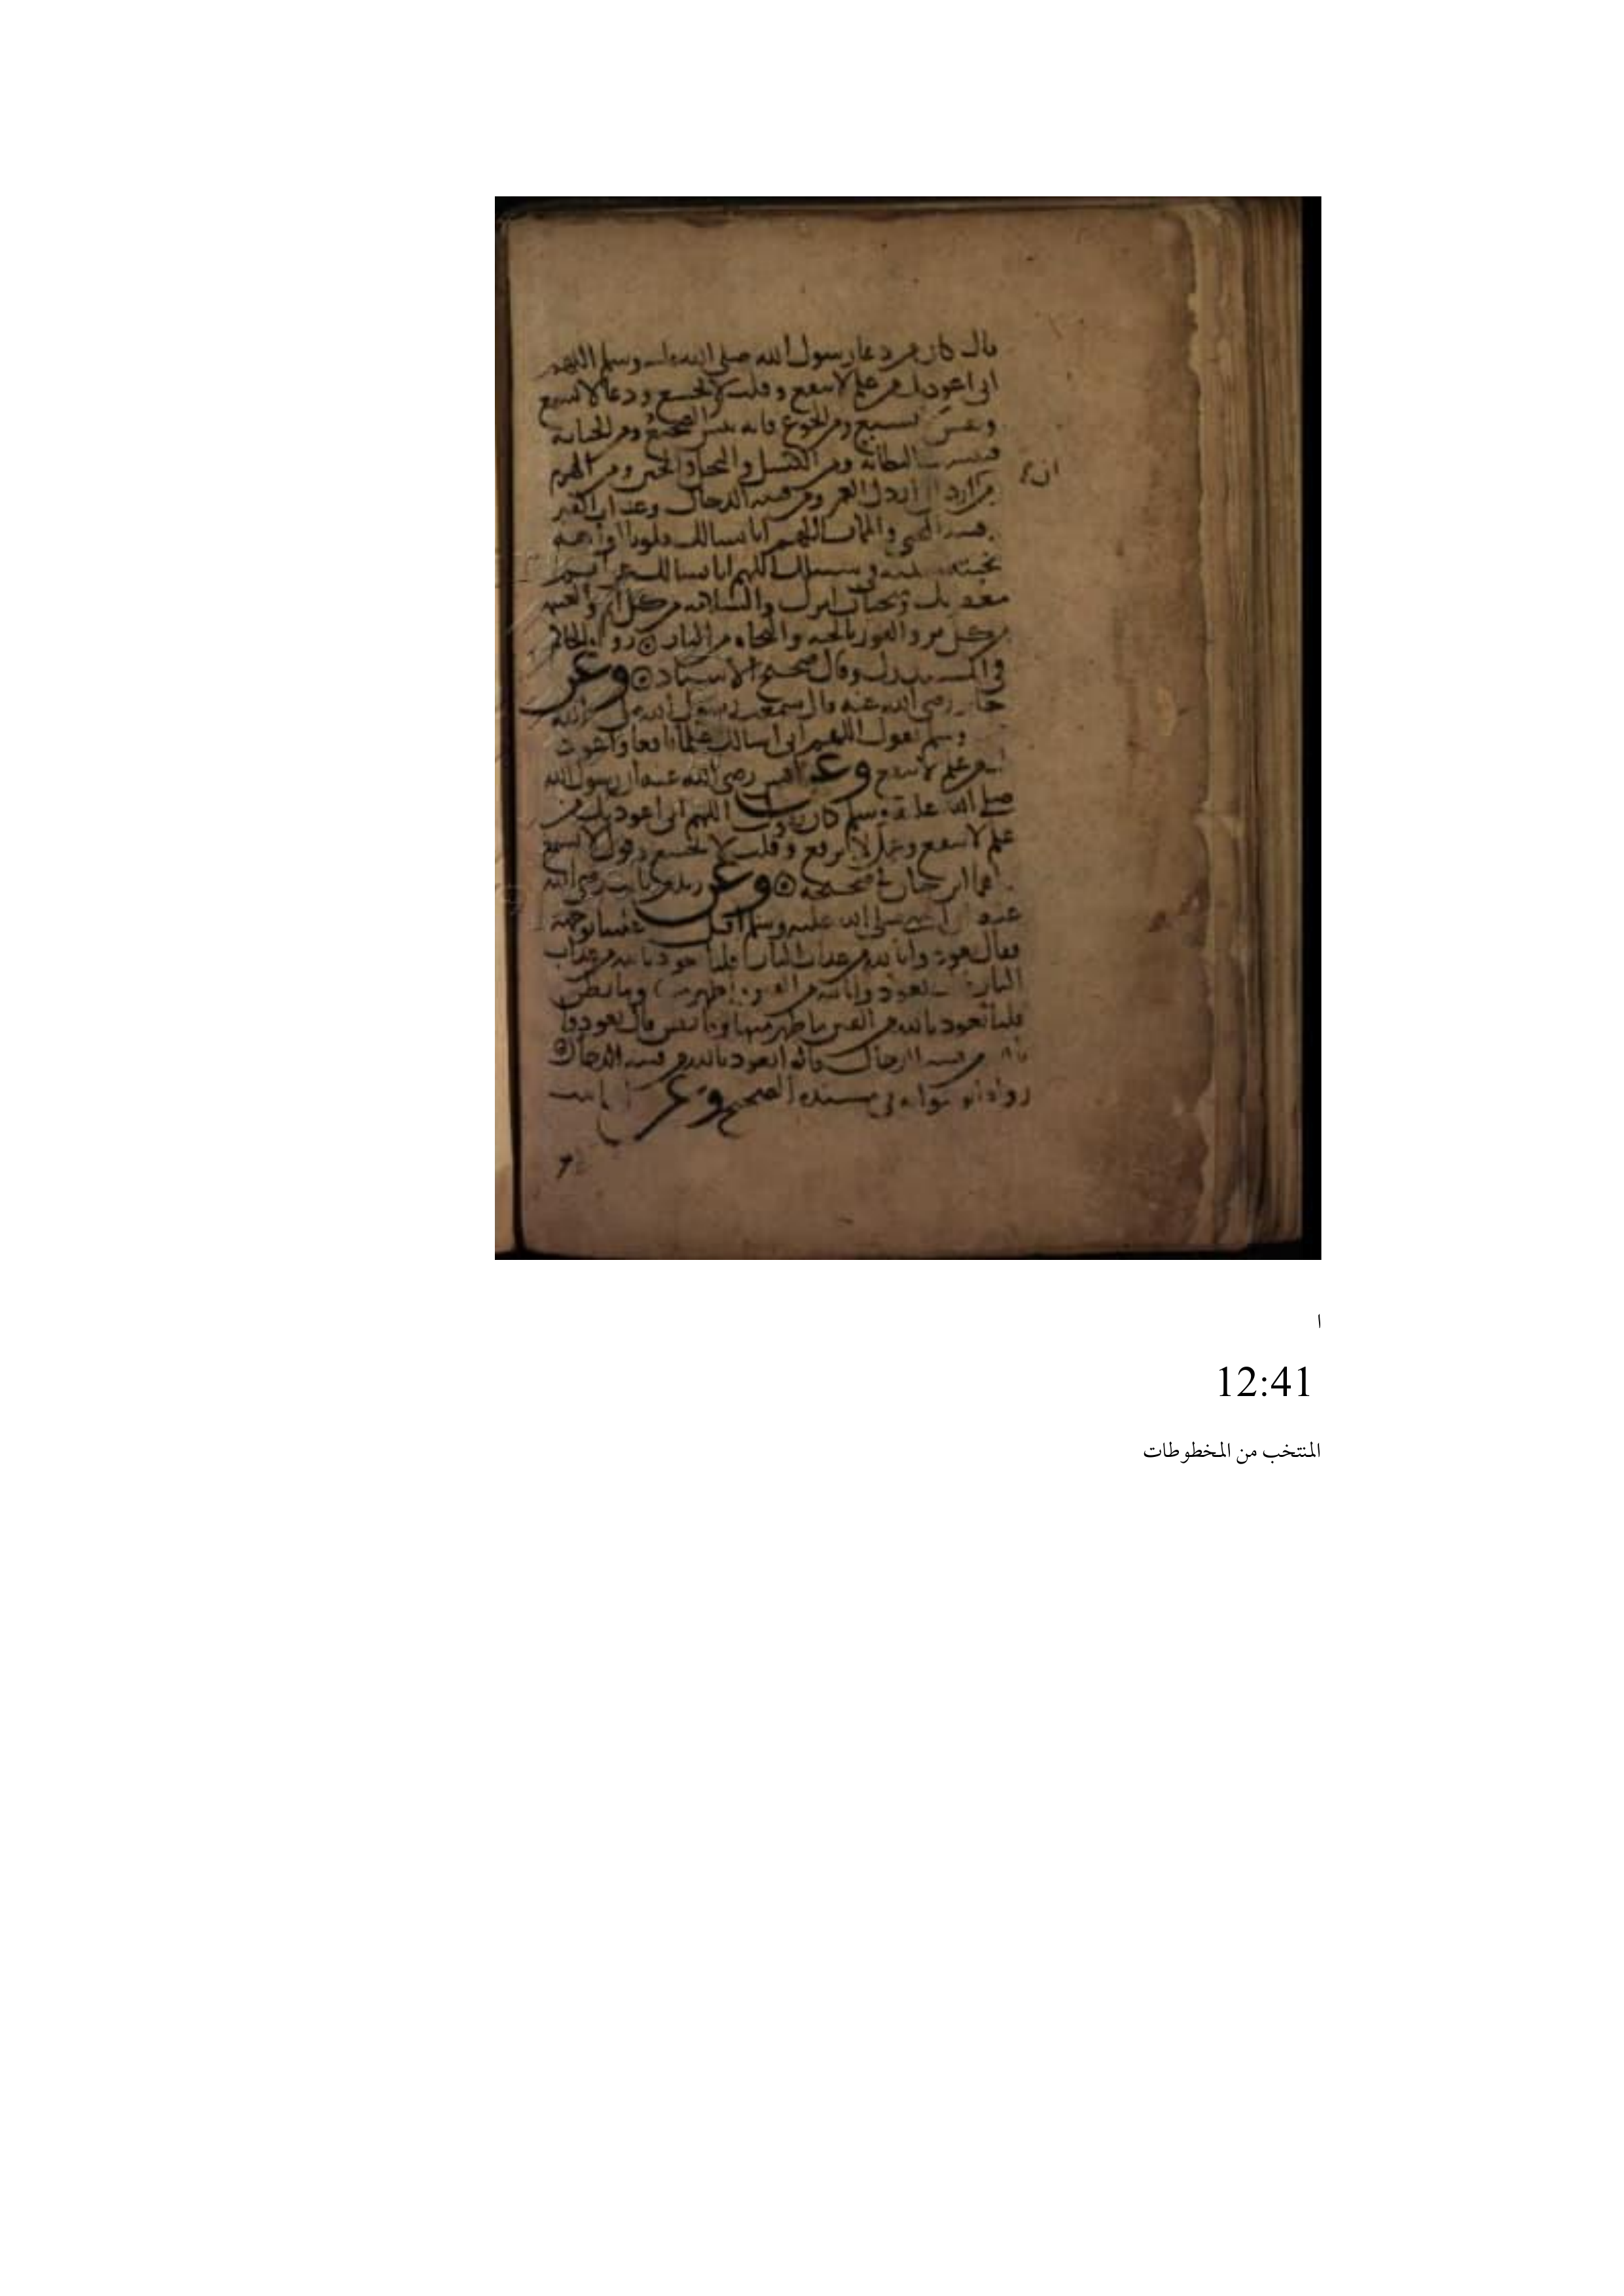 قال كان من دعا رسول الله صلى الله عليه وسلم اللهم
انى اعوذ بك من علم لا ينفع وقلب لا يخشع ودعا لا يسمع
ونفس لا تشبع ومن الجوع فانه بئس الضجيع ومن الخيانة
فبئست البطانة ومن الكسل والبخل والجبن ومن الهرم
ان
من ارد الى اردل العمر ومن فتنه الدجال وعذاب القبر
فتنه المحيى والممات اللهم انا نسالك قلوبا اواهه
مخبته فى سبيلك اللهم انا نسالك
امرك والسلامه من كل اثم والغنيمه
من كل بر والفوز بالجنه والنجاه من النار رواه الحاكم
فى المستدرك وقال صحيح الاسناد وعن
جابر رضى الله عنه قال سمعت رسول الله صلى الله
وسلم يقول اللهم انى اسالك علما نافعا واعوذ
من علم لا ينفع وعن انس رضى الله عنه ان رسول الله
صلى الله عليه وسلم كان يقول اللهم انى اعوذ بك من
علم لا ينفع وعمل لا يرفع وقلب لا يخشع وقول لا يسمع
ابن حبان فى صحيحه وعن زيد بن ثابت رضى الله
عنه صلى الله عليه وسلم اقبل علينا بوجهه
فقال تعوذوا بالله من عذاب النار قلنا نعوذ بالله من عذاب
النار تعوذوا بالله من الفتن ما ظهر منها وما بطن
قلنا نعوذ بالله من الفتن ما ظهر منها وما بطن قال تعوذوا
بالله من فتنه الدجال قالوا نعوذ بالله من فتنه الدجال
رواه ابو عوانه فى مسنده الصحيح وعن
ا
12:41
المنتخب من المخطوطات